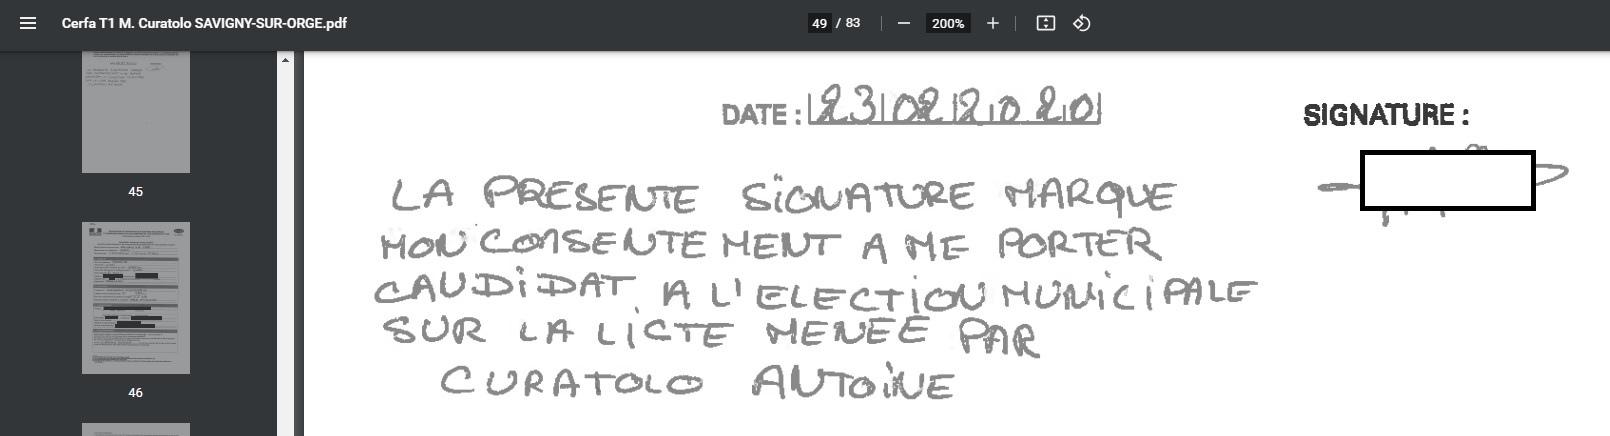 Cerfa T1 M. Curatolo SAVIGNY-SUR-ORGE.pdf
49 / 83
200%
45
46
DATE : 23 02 2020
SIGNATURE :
LA PRESENTE SIGNATURE MARQUE
MON CONSENTEMENT A ME PORTER
CAUDIDAT A L'ELECTION MUNICIPALE
SUR LA LICTE MENEE PAR
CURATOLO ANTOINE